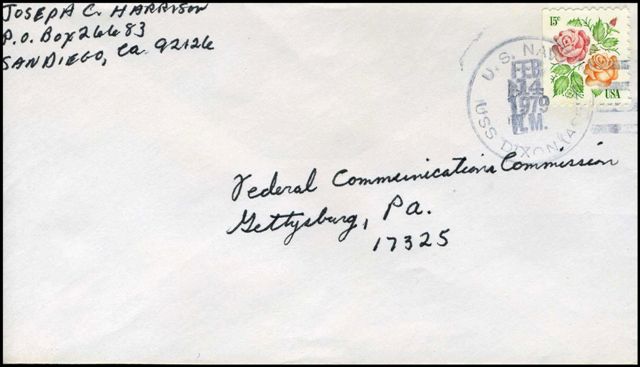 JOSEPH C. HARRISON
P.O. Box 26683
SAN DIEGO, Ca. 92126
15c
USA
U.S. NAVY
FEB
14
1979
USS DIXON (AS
Federal Communications Commission
Gettysburg, Pa.
17325